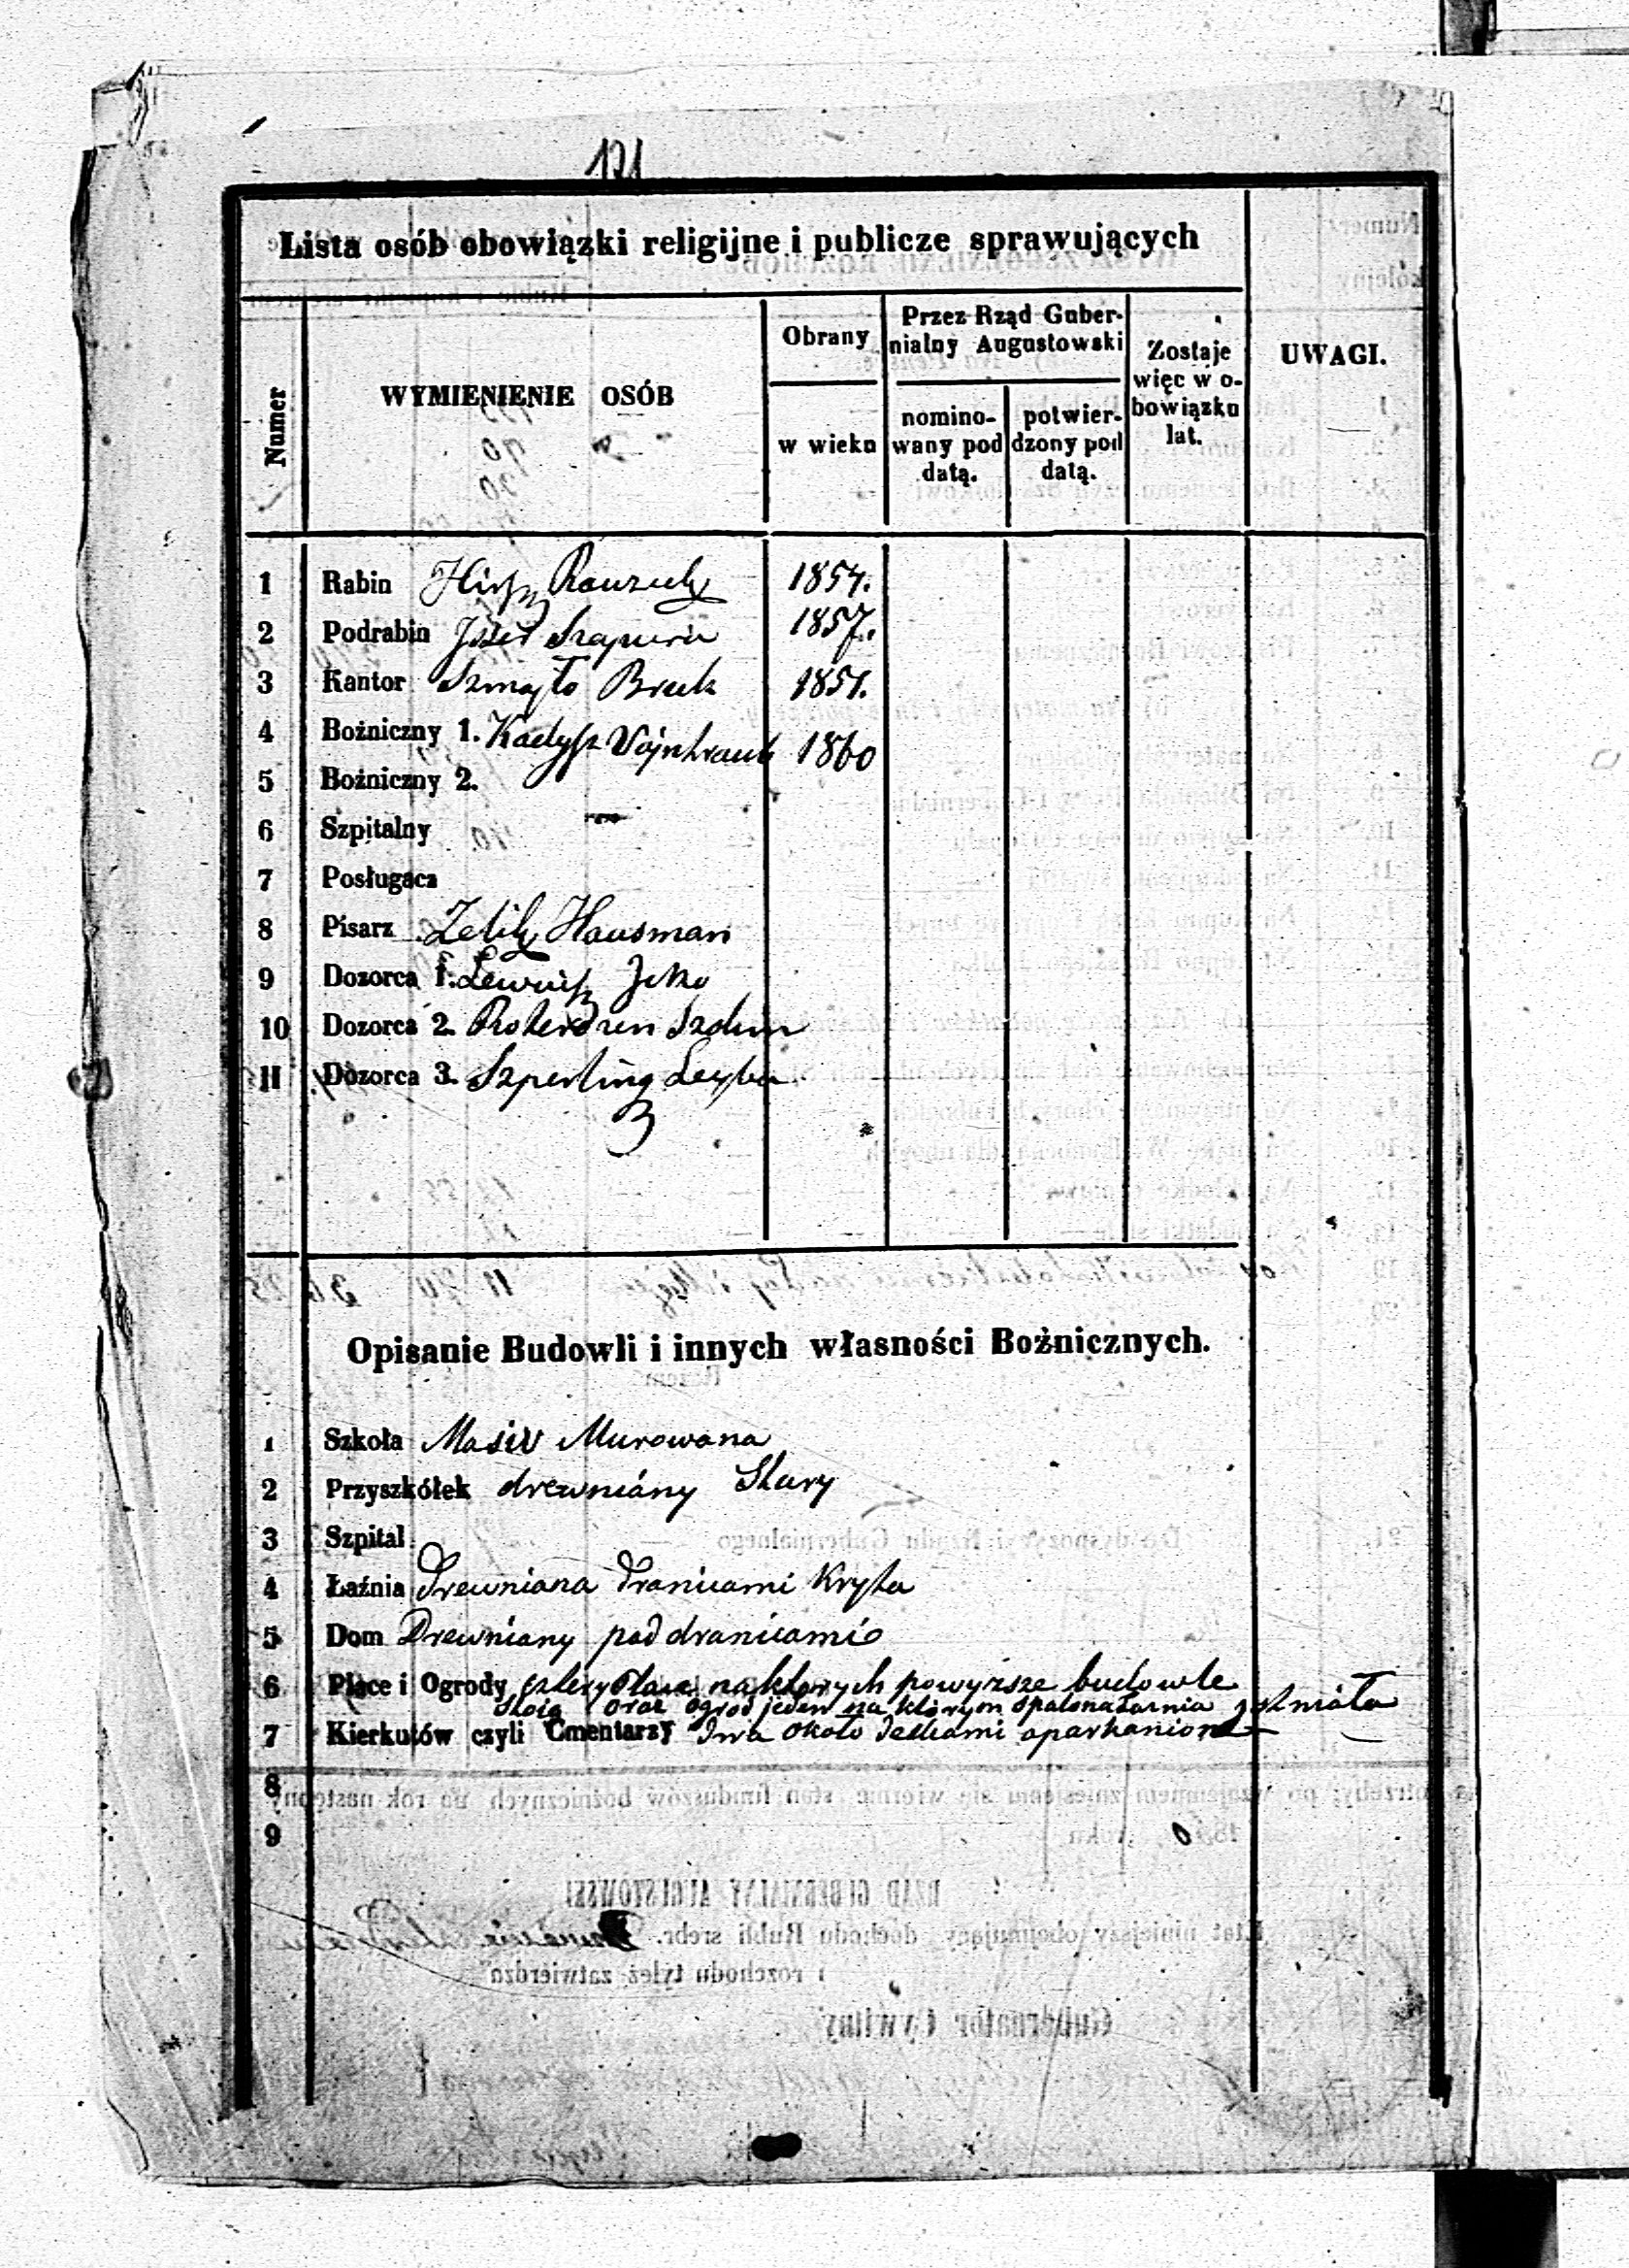 121
Lista osób obowiązki religijne i publicze sprawujących
Numer
WYMIENIENIE OSÓB
Obrany
w wieku
Przez Rząd Guber-
nialny Augustowski
nomino-
wany pod
datą.
potwier-
dzony pod
datą.
Zostaje
więc w o-
bowiązku
lat.
UWAGI.
1 Rabin Hirsz 1854.
2 Podrabin Szapiro 1857.
3 Kantor Szmojło Bruk 1851.
4 Bożniczny 1. Kadysz Vajntraub 1860
5 Bożniczny 2.
6 Szpitalny
7 Posługacz
8 Pisarz Zelik Hausman
9 Dozorca 1. Jcko
10 Dozorca 2.
11 Dozorca 3. Szperling Leyba
Opisanie Budowli i innych własności Bożnicznych.
1 Szkoła Masiv Murowana
2 Przyszkółek drewniány Stary
3 Szpital
4 Łaźnia Drewniana Dranicami Kryta
5 Dom Drewniany pod dranicami
6 Place i Ogrody cztery place na których powyższe budowle
stoią oraz ogrod jeden na którym spalona łaznia istniała
7 Kierkutów czyli Cmentarzy Dwa około deskami oparkanione
8
9